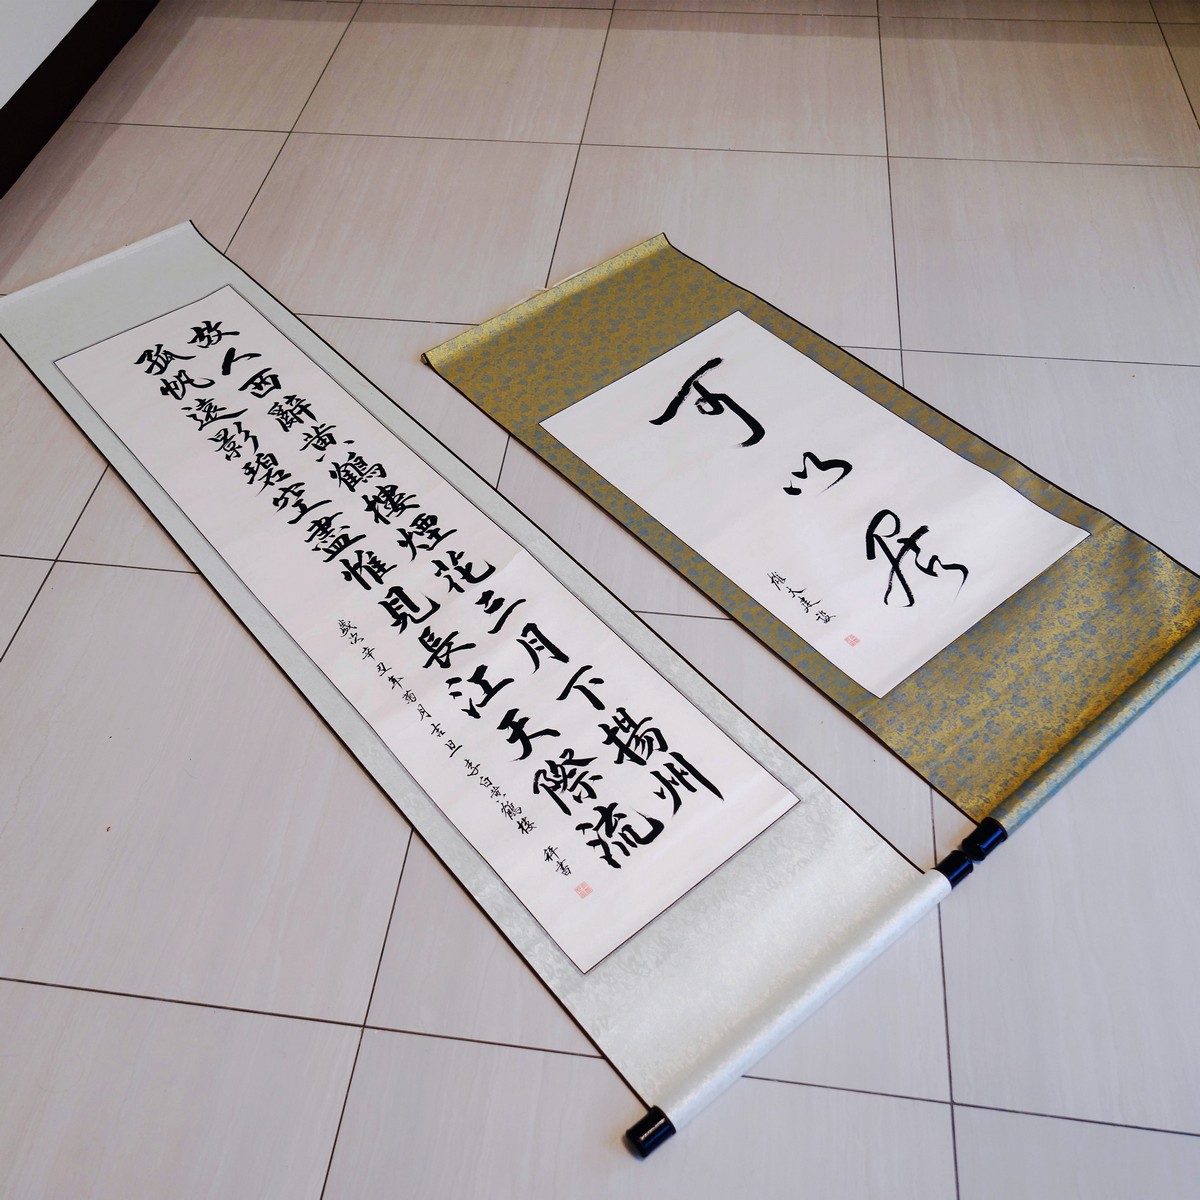 故人西辭黃鶴樓煙花三月下揚州
孤帆遠影碧空盡惟見長江天際流
歲次辛丑年菊月吉旦 李白黃鶴樓 祥書
可以居